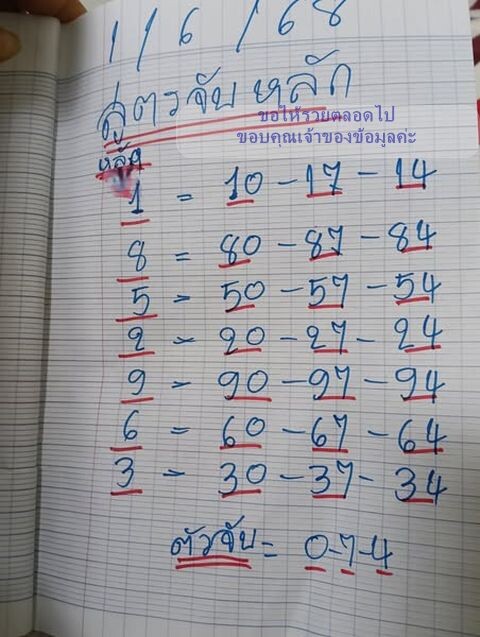 1/6/68
สูตรจับหลัก
ขอให้รวยตลอดไป
ขอบคุณเจ้าของข้อมูลค่ะ
หลัก
1 = 10 - 17 - 14
8 = 80 - 87 - 84
5 = 50 - 57 - 54
2 = 20 - 27 - 24
9 = 90 - 97 - 94
6 = 60 - 67 - 64
3 = 30 - 37 - 34
ตัวจับ = 0-7-4